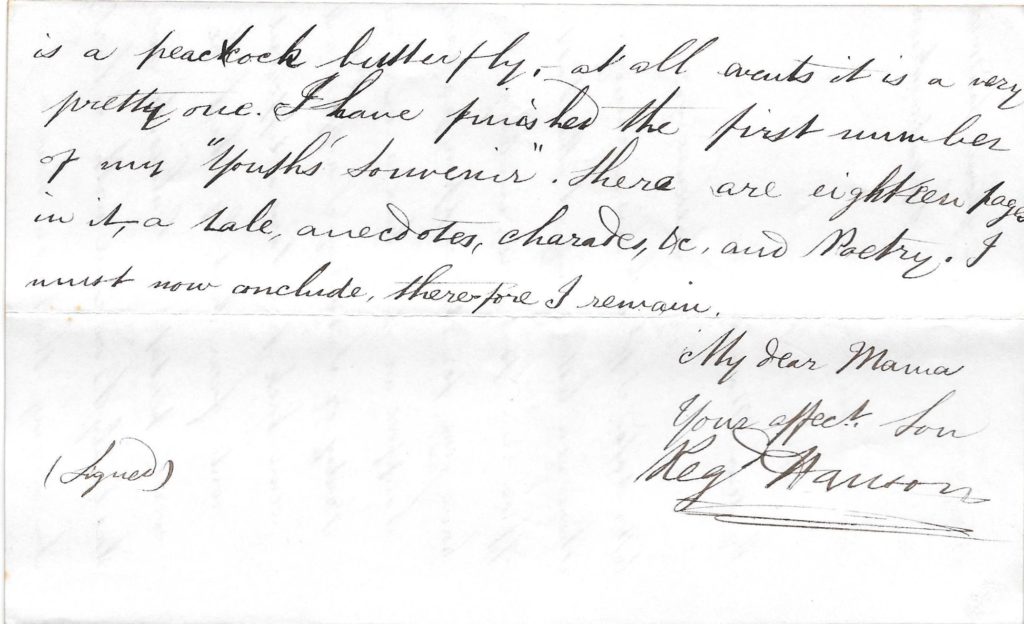 is a peackock butterfly, - at all events it is a very
pretty one. I have finished the first number
of my "Youth's Souvenir". There are eighteen pages
in it, a tale, anecdotes, charades, &c, and Poetry. I
must now conclude, therefore I remain.
My dear Mama
Your affect. Son
(Signed)
Regd Hanson